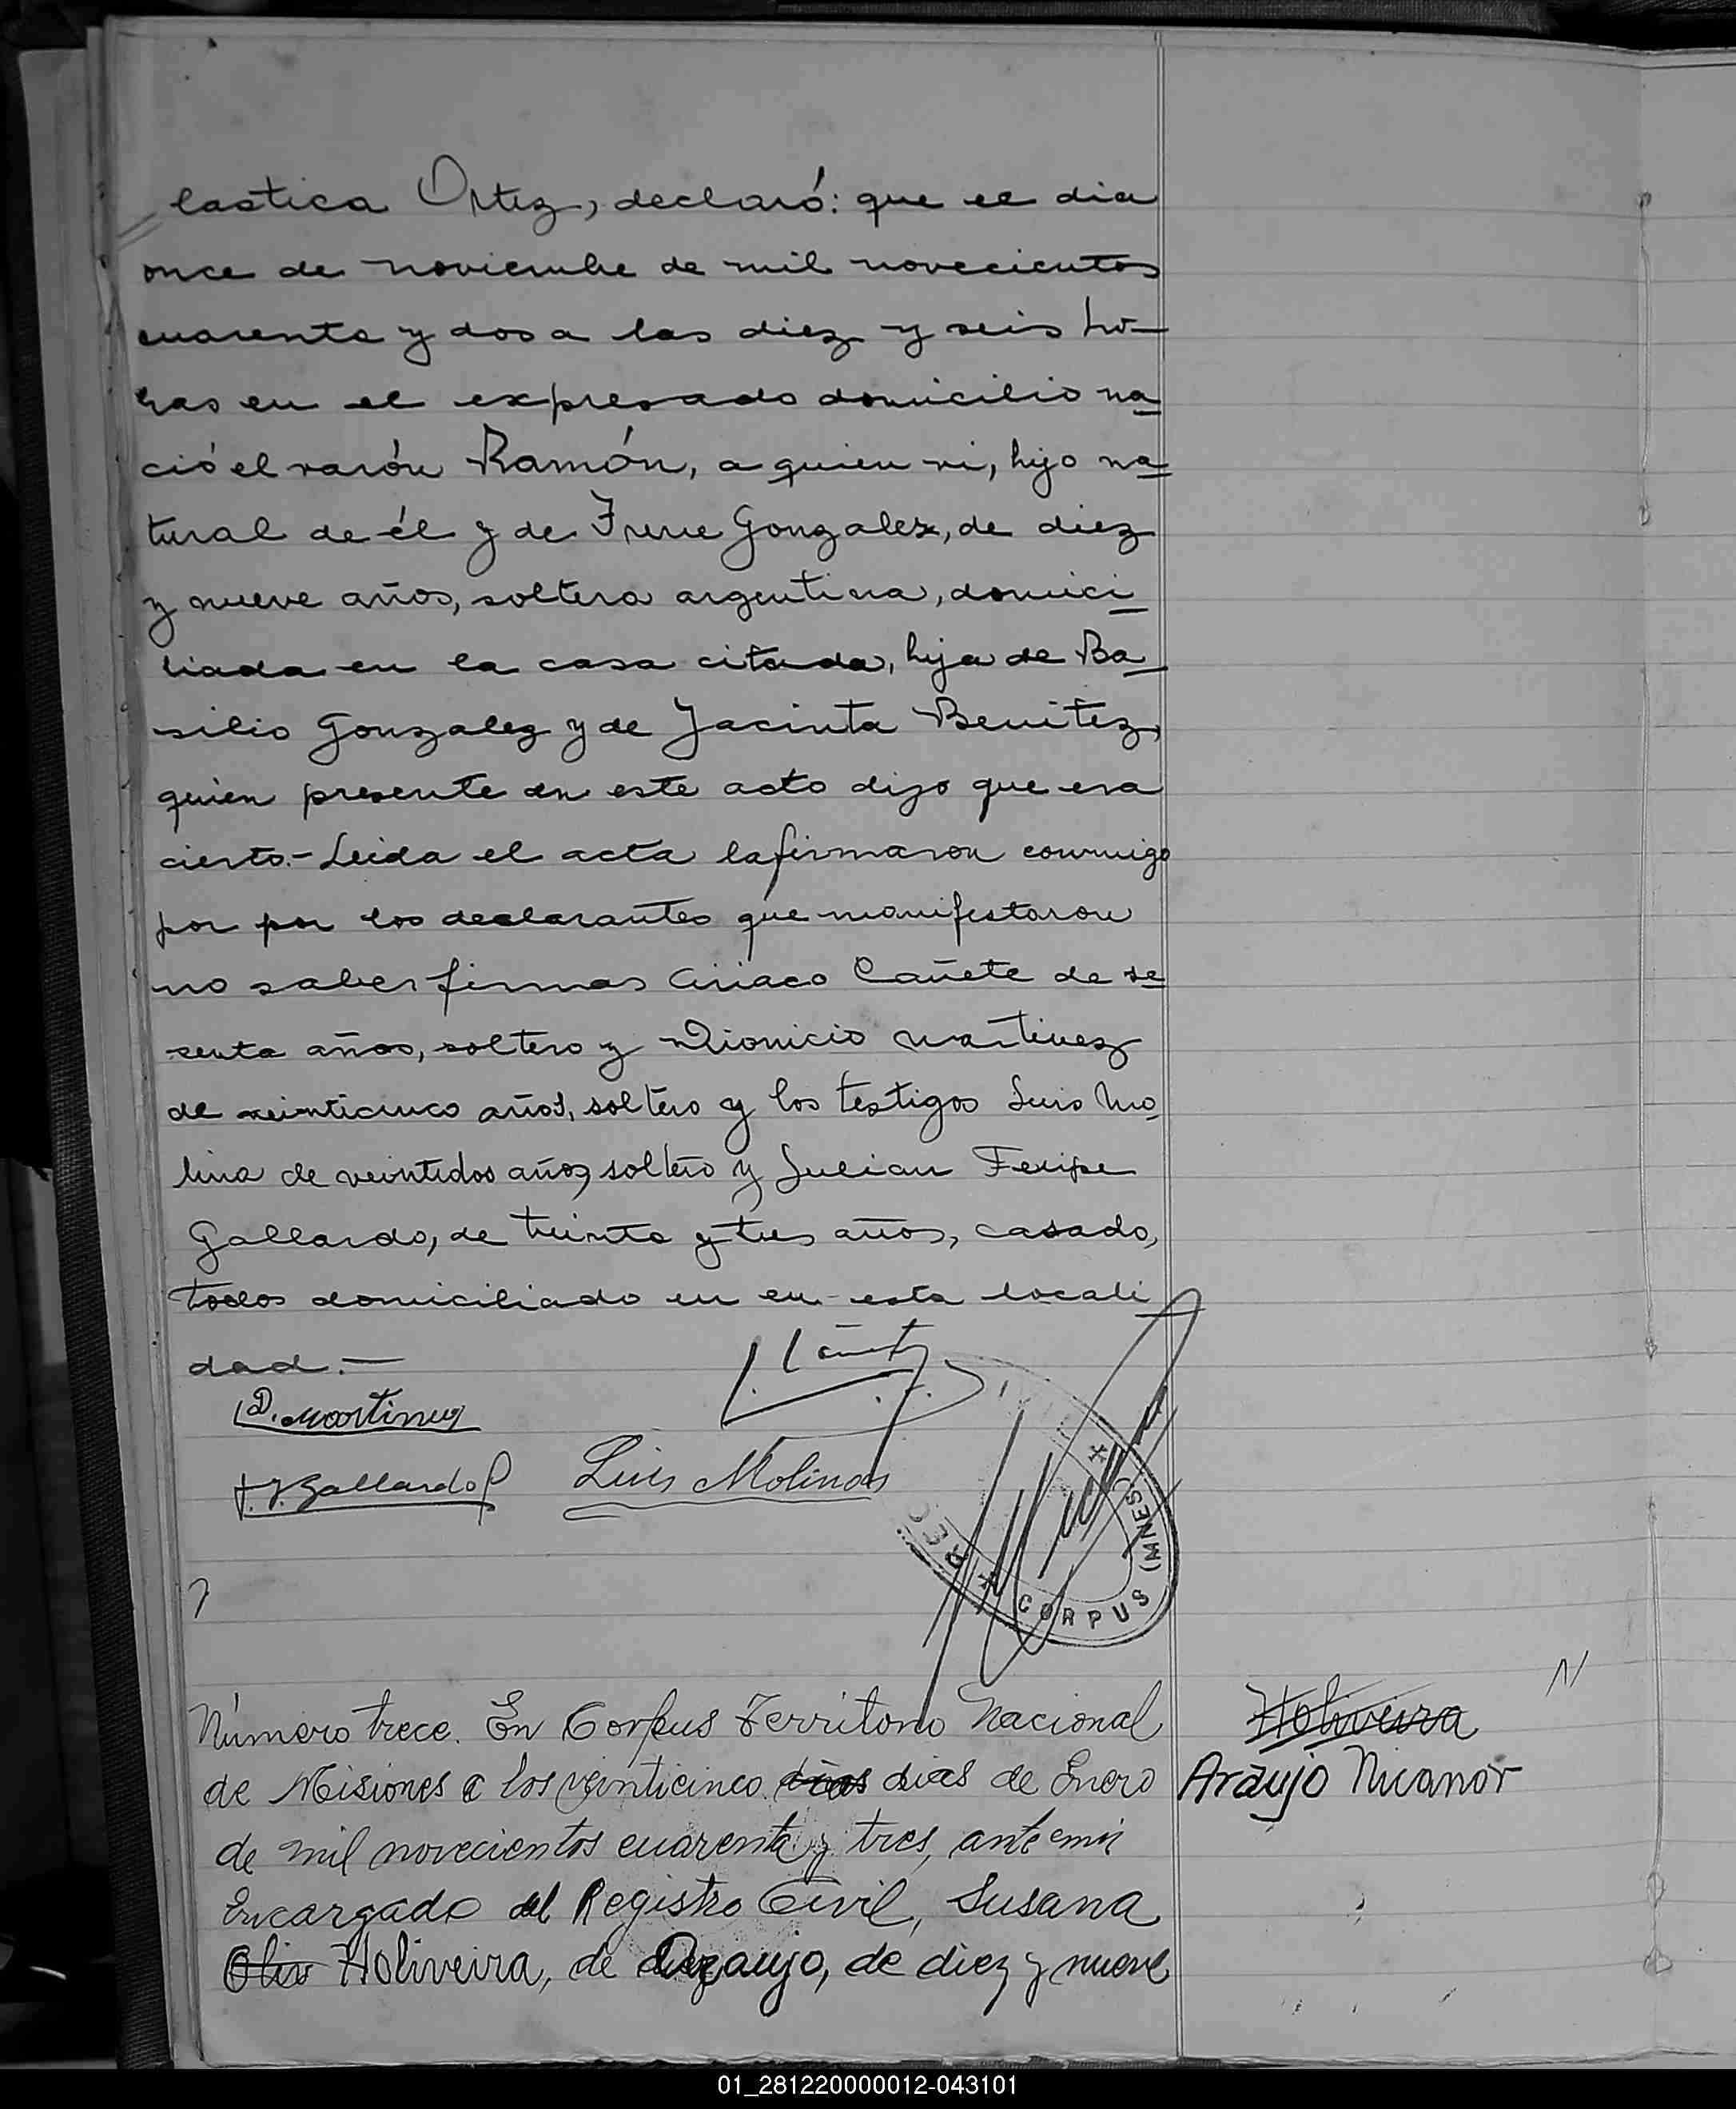 lastica Ortiz, declaró: que el dia
once de noviembre de mil novecientos
cuarenta y dos a las diez y seis ho-
ras en el expresado domicilio na
ció el varón Ramón, a quien vi, hijo na
tural de él y de Irene Gonzalez, de diez
y nueve años, soltera argentina, domici
liada en la casa citada, hija de Ba
silio Gonzalez y de Jacinta Benitez,
quien presente en este acto dijo que era
cierto.- Leida el acta la firmaron conmigo
por por los declarantes que manifestaron
no saber firmar Ciriaco Cañete de se
senta años, soltero y Dionicio Martinez
de veinticinco años, soltero y los testigos Luis Mo
lina de veintidos años, soltero y Julian Felipe
Gallardo, de treinta y tres años, casado,
todos domiciliado en en esta locali
dad.-
D. Martinez
Cañete
J. Gallardo
Luis Molinas
REG
CORPUS (MNES)
Número trece. En Corpus Territorio Nacional
de Misiones a los veinticinco dias dias de Enero
de mil novecientos cuarenta y tres, ante mi
Encargado del Registro Civil, Susana
Oliv Holiveira, de Araujo, de diez y nueve
N
Holiveira
Araujo Nicanor
01_281220000012-043101